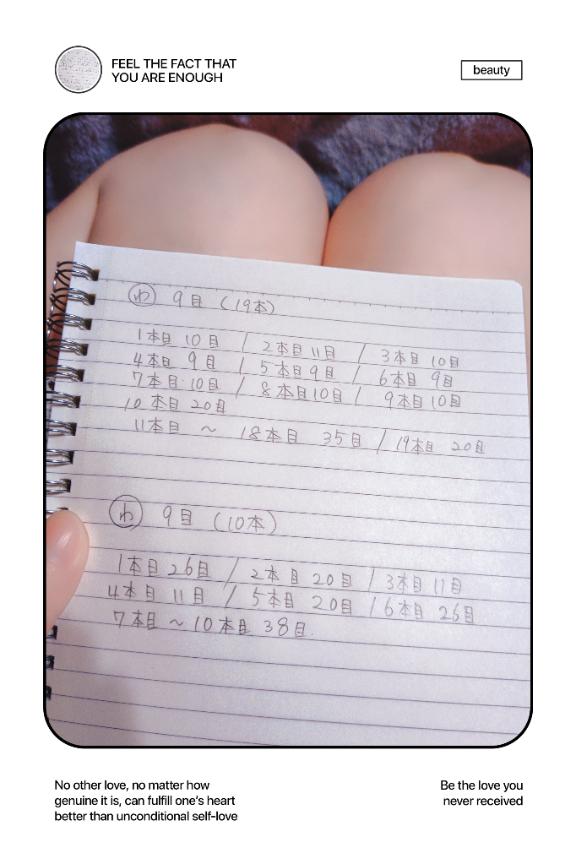 FEEL THE FACT THAT
YOU ARE ENOUGH
beauty
わ 9目 (19本)
1本目 10目 / 2本目 11目 / 3本目 10目
4本目 9目 / 5本目 9目 / 6本目 9目
7本目 10目 / 8本目 10目 / 9本目 10目
10本目 20目
11本目 ~ 18本目 35目 / 19本目 20目
わ 9目 (10本)
1本目 26目 / 2本目 20目 / 3本目 11目
4本目 11目 / 5本目 20目 / 6本目 26目
7本目 ~ 10本目 38目.
No other love, no matter how
genuine it is, can fulfill one's heart
better than unconditional self-love
Be the love you
never received